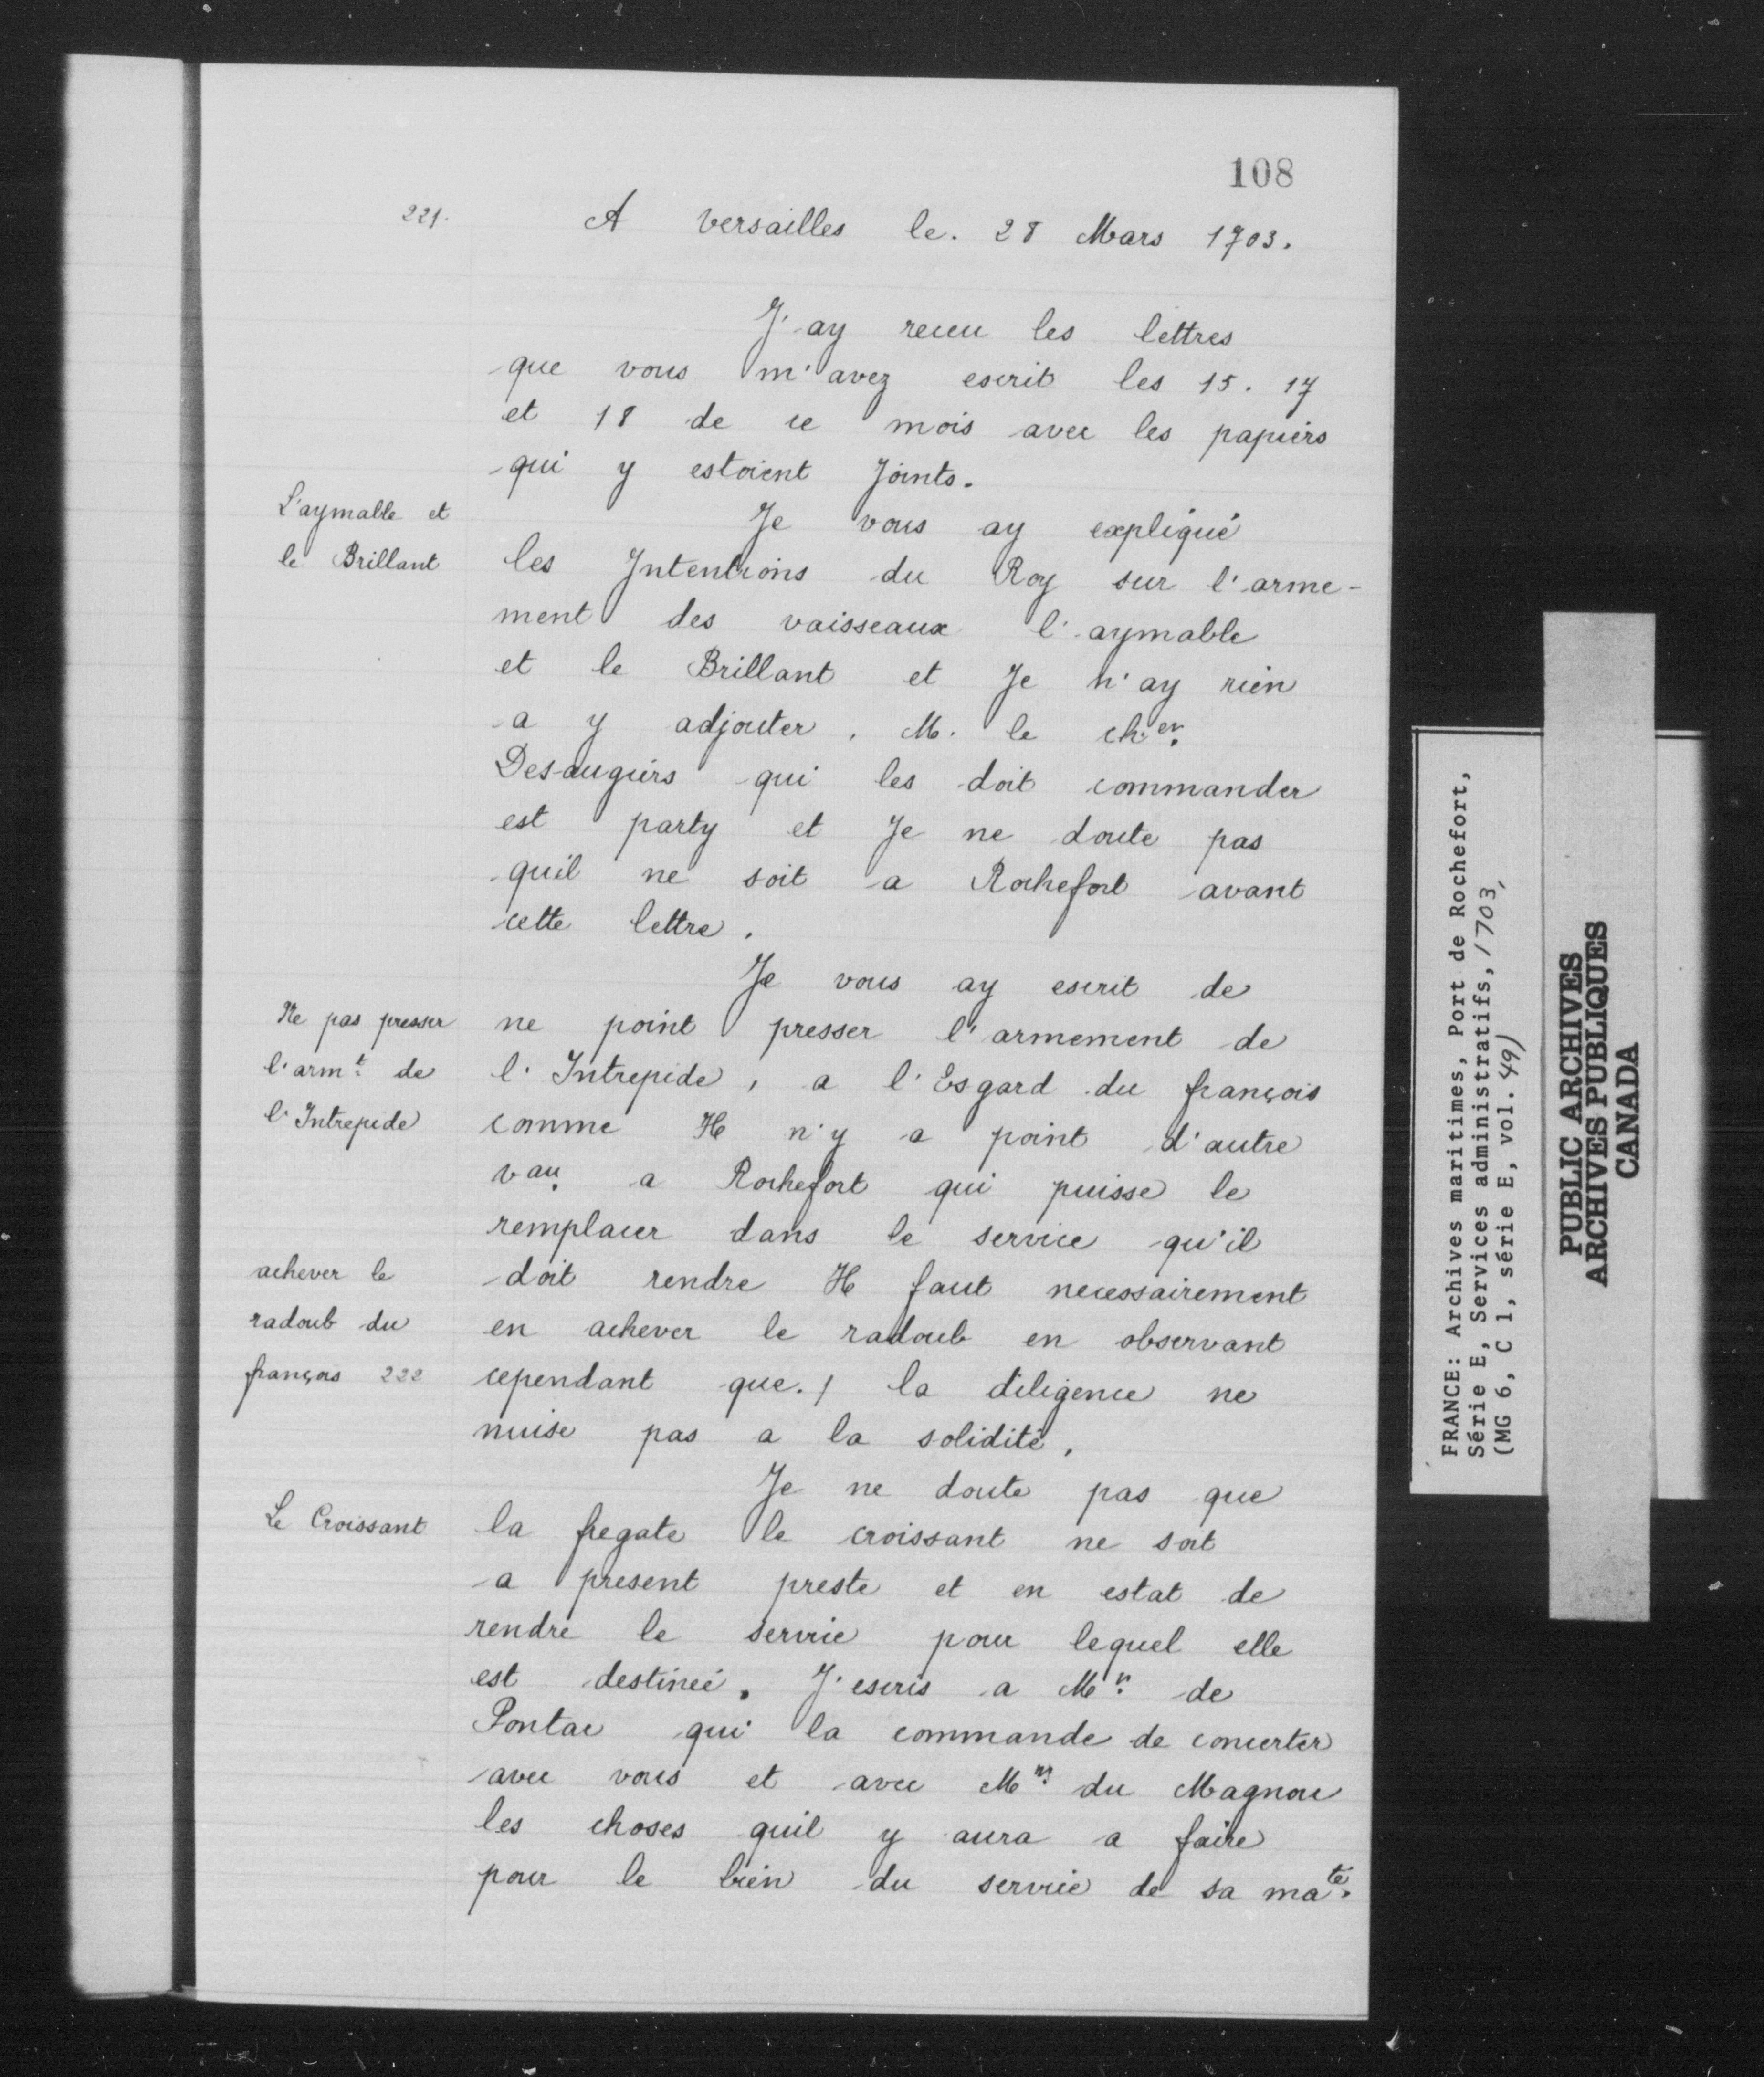 108
221. A Versailles le. 28 Mars 1703.
J'ay receu les lettres
que vous m'avez escrit les 15. 17
et 18 de ce mois avec les papiers
qui y estoient Joints.
L'aymable et
le Brillant
Je vous ay expliqué
les Intentions du Roy sur l'arme-
ment des vaisseaux l'aymable
et le Brillant et Je n'ay rien
a y adjouter, M. le cher.
Desaugiers qui les doit commander
est party et Je ne doute pas
quil ne soit a Rochefort avant
cette lettre.
Ne pas presser
l'armt. de
l'Intrepide
Je vous ay escrit de
ne point presser l'armement de
l'Intrepide, a l'Esgard du françois
comme Il n'y a point d'autre
vau. a Rochefort qui puisse le
remplacer dans le service qu'il
achever le
radoub du
françois 222
doit rendre Il faut necessairement
en achever le radoub en observant
cependant que. / la diligence ne
nuise pas a la solidité.
Le Croissant
Je ne doute pas que
la fregate le croissant ne soit
a present preste et en estat de
rendre le service pour lequel elle
est destinée. J'escris a Mr. de
Pontac qui la commande de concerter
avec vous et avec Mr. du Magnou
les choses quil y aura a faire
pour le bien du service de sa maté.
FRANCE: Archives maritimes, Port de Rochefort,
Série E, Services administratifs, 1703,
(MG 6, C 1, série E, vol. 49)
PUBLIC ARCHIVES
ARCHIVES PUBLIQUES
CANADA